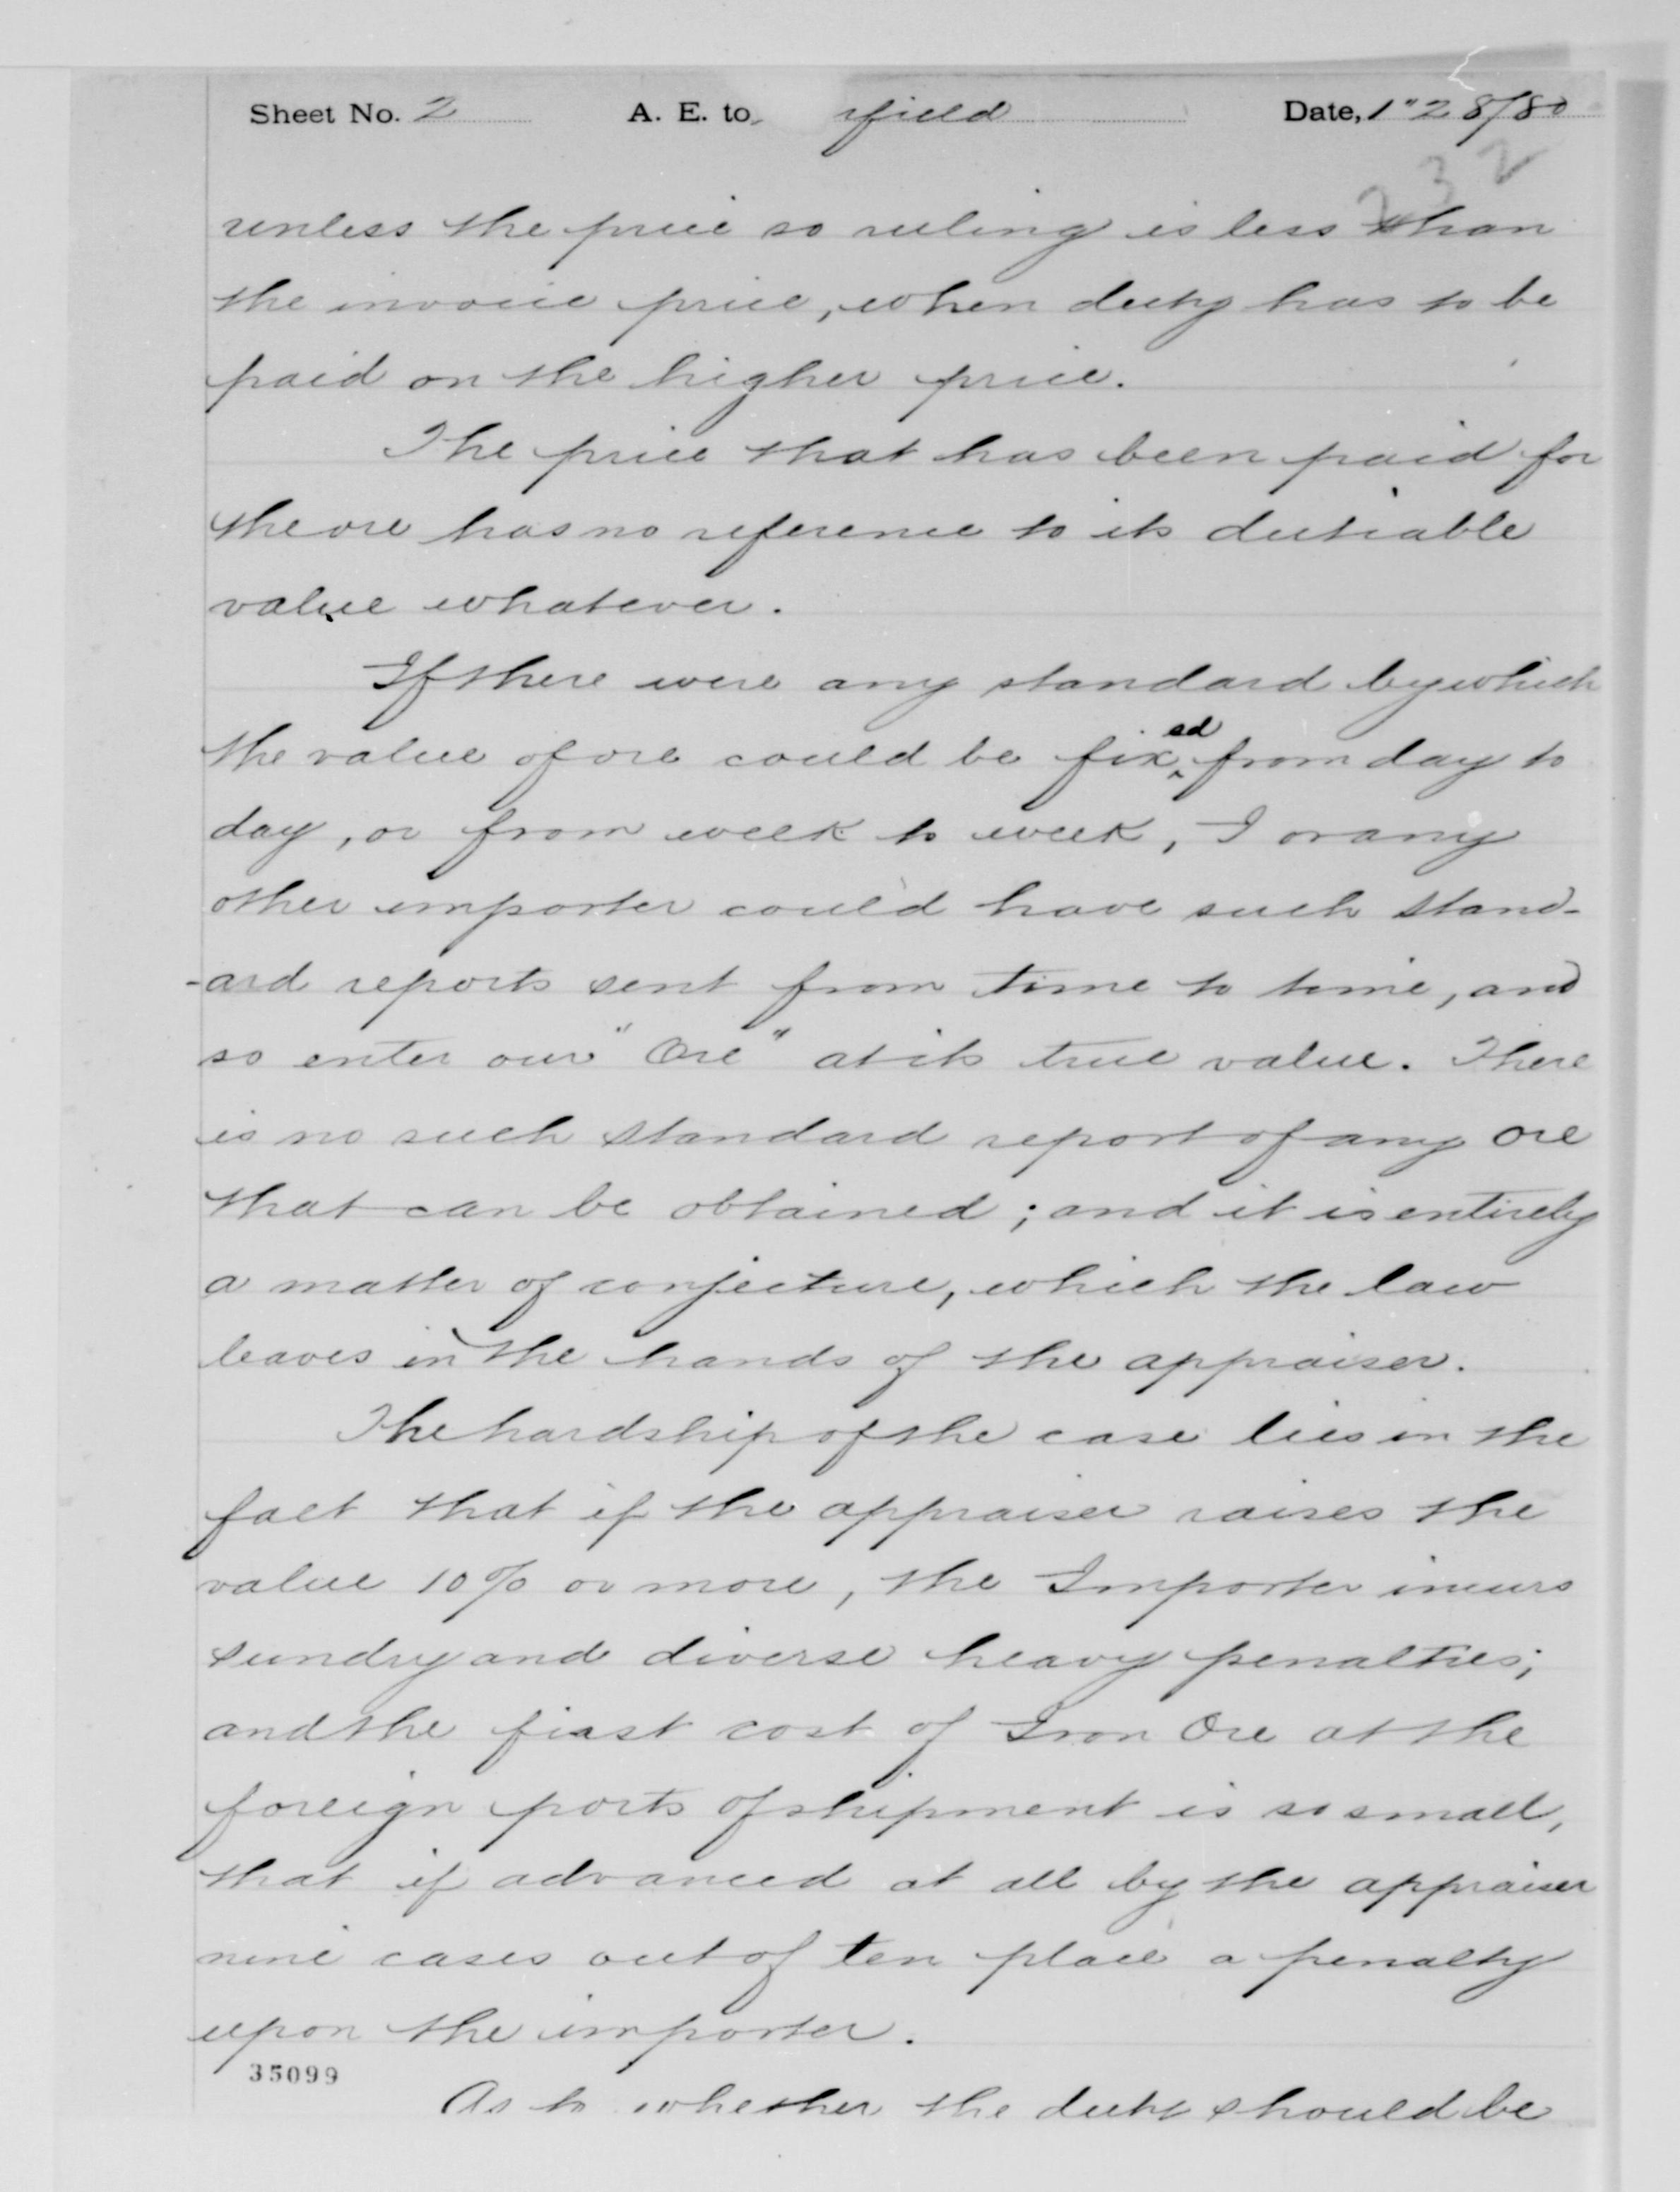 Sheet No. 2 A. E. to field Date, 1"28/80
232
unless the price so ruling is less than
the invoice price, when duty has to be
paid on the higher price.
The price that has been paid for
the ore has no reference to its dutiable
value whatever.
If there were any standard by which
the value of ore could be fixed from day to
day, or from week to week, I or any
other importer could have such stand-
-ard reports sent from time to time, and
so enter our "Ore" at its true value. There
is no such standard report of any ore
that can be obtained; and it is entirely
a matter of conjecture, which the law
leaves in the hands of the appraiser.
The hardship of the case lies in the
fact that if the appraiser raises the
value 10% or more, the Importer incurs
sundry and diverse heavy penalties;
and the first cost of Iron Ore at the
foreign ports of shipment is so small,
that if advanced at all by the appraiser
nine cases out of ten place a penalty
upon the importer.
35099
As to whether the duty should be